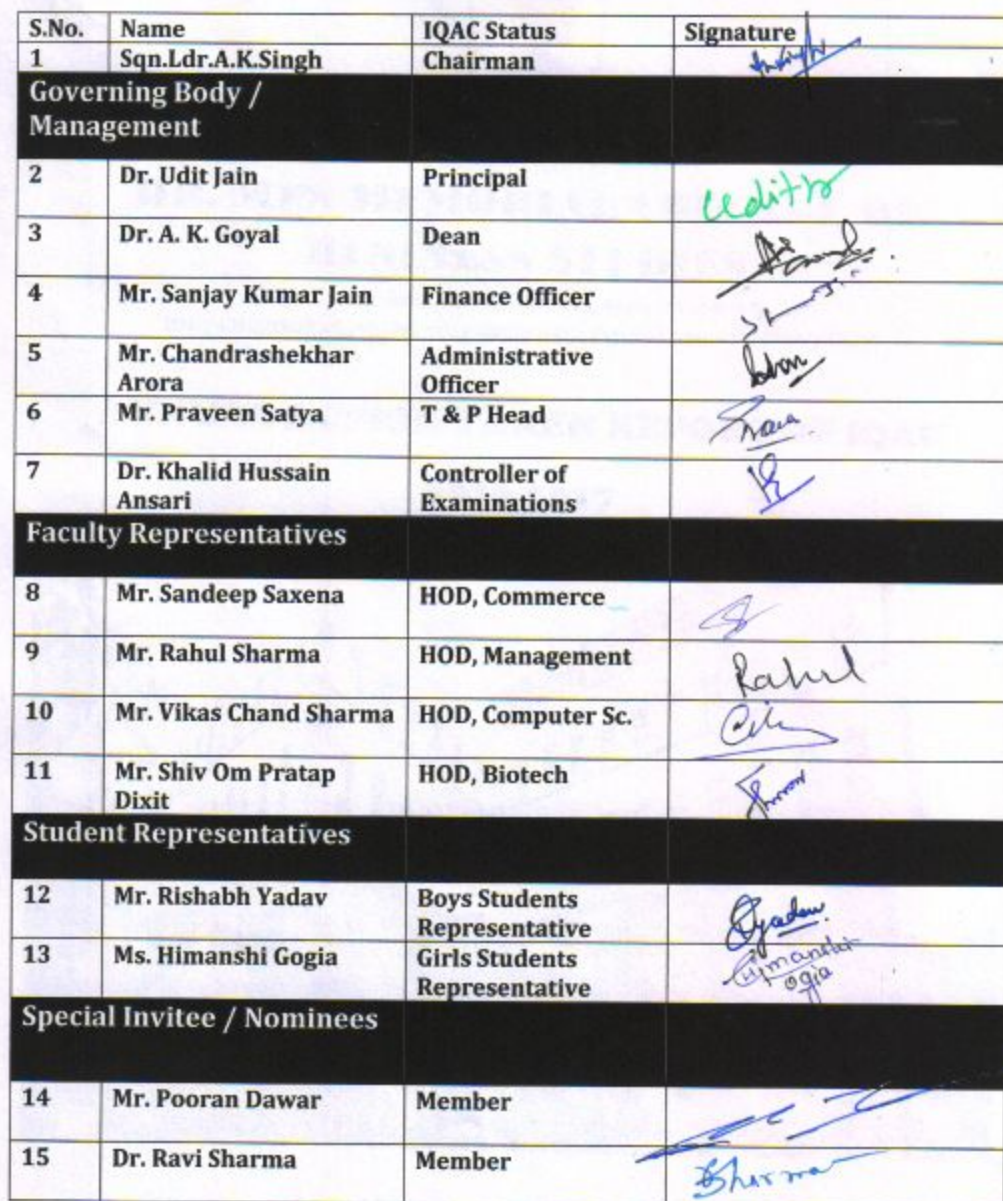 S.No. Name IQAC Status Signature
1 Sqn.Ldr.A.K.Singh Chairman
Governing Body /
Management
2 Dr. Udit Jain Principal
3 Dr. A. K. Goyal Dean
4 Mr. Sanjay Kumar Jain Finance Officer
5 Mr. Chandrashekhar Administrative
Arora Officer
6 Mr. Praveen Satya T & P Head
7 Dr. Khalid Hussain Controller of
Ansari Examinations
Faculty Representatives
8 Mr. Sandeep Saxena HOD, Commerce
9 Mr. Rahul Sharma HOD, Management Rahul
10 Mr. Vikas Chand Sharma HOD, Computer Sc.
11 Mr. Shiv Om Pratap HOD, Biotech
Dixit
Student Representatives
12 Mr. Rishabh Yadav Boys Students
Representative
13 Ms. Himanshi Gogia Girls Students
Representative
Special Invitee / Nominees
14 Mr. Pooran Dawar Member
15 Dr. Ravi Sharma Member